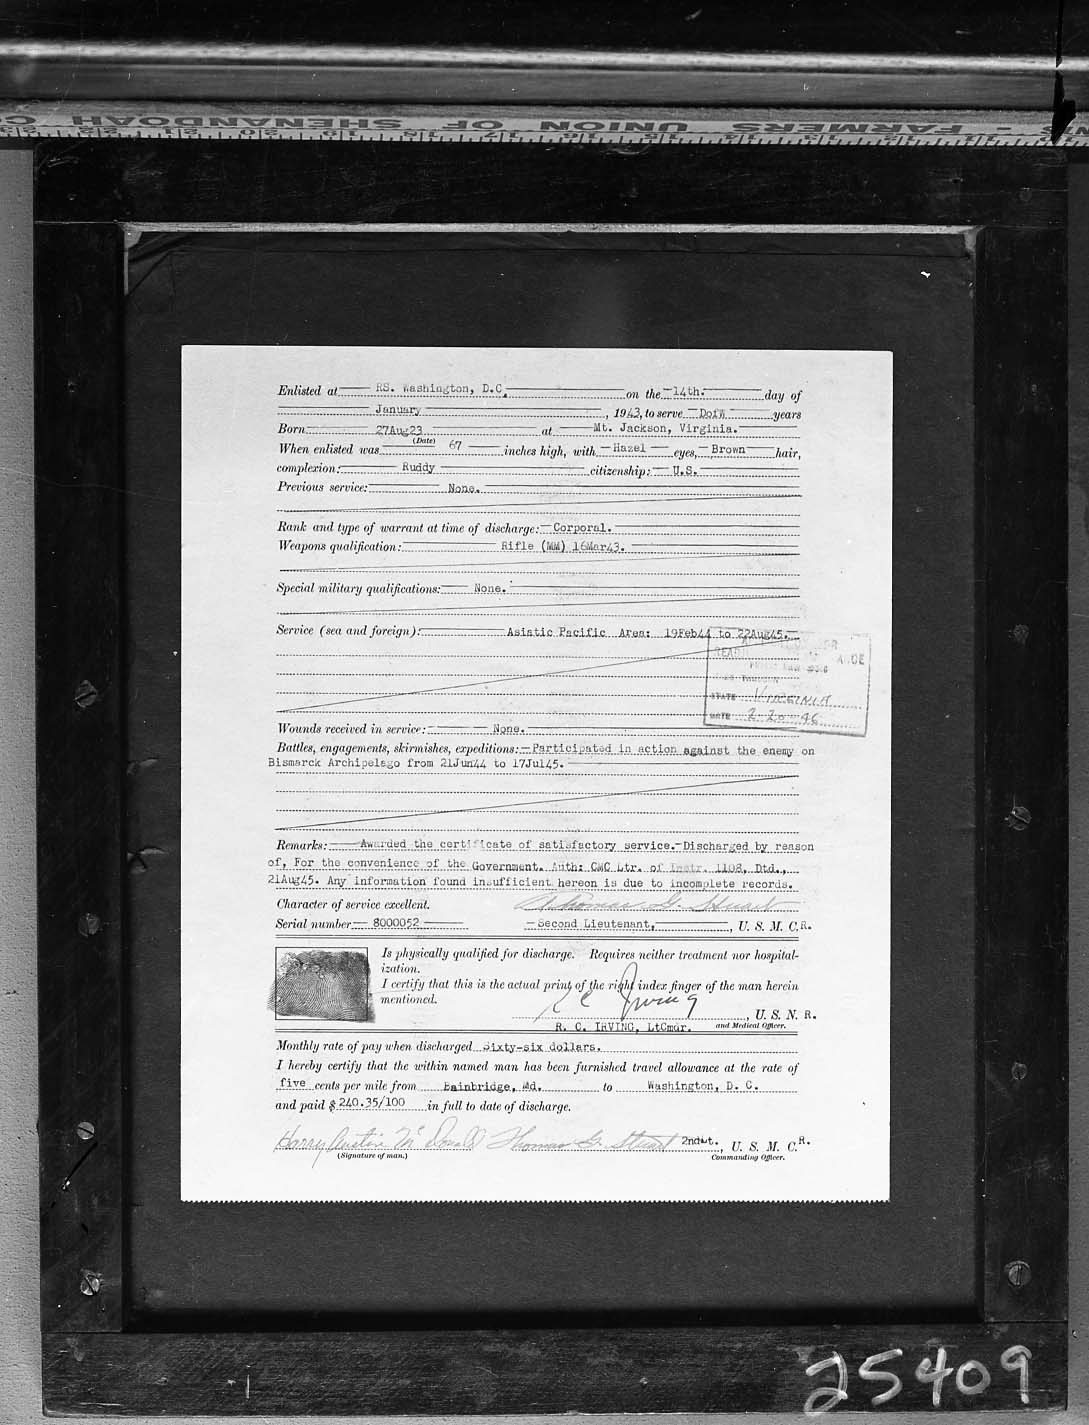 FARMERS - UNION OF SHENANDOAH CO
Enlisted at RS. Washington, D.C. on the 14th. day of
January, 1943, to serve DofW years
Born 27Aug23 at Mt. Jackson, Virginia.
(Date)
When enlisted was 67 inches high, with Hazel eyes, Brown hair,
complexion: Ruddy citizenship: U.S.
Previous service: None.
Rank and type of warrant at time of discharge: Corporal.
Weapons qualification: Rifle (MM) 16Mar43.
Special military qualifications: None.
Service (sea and foreign): Asiatic Pacific Area: 19Feb44 to 22Aug45.
STATE VIRGINIA
DATE 2-20-46
Wounds received in service: None.
Battles, engagements, skirmishes, expeditions: Participated in action against the enemy on
Bismarck Archipelago from 21Jun44 to 17Jul45.
Remarks: Awarded the certificate of satisfactory service. Discharged by reason
of, For the convenience of the Government. Auth: CMC Ltr. of Instr. 1108, Dtd.,
21Aug45. Any information found insufficient hereon is due to incomplete records.
Character of service excellent. Thomas G. Stuart
Serial number 8000052 Second Lieutenant, U. S. M. C.R.
Is physically qualified for discharge. Requires neither treatment nor hospital-
ization.
I certify that this is the actual print of the right index finger of the man herein
mentioned.
R C Irving, U. S. N. R.
R. C. IRVING, LtCmdr. and Medical Officer.
Monthly rate of pay when discharged Sixty-six dollars.
I hereby certify that the within named man has been furnished travel allowance at the rate of
five cents per mile from Bainbridge, Md. to Washington, D. C.
and paid $ 240.35/100 in full to date of discharge.
Harry Austin McDonald Thomas G. Stuart 2ndLt., U. S. M. C.R.
(Signature of man.) Commanding Officer.
25409